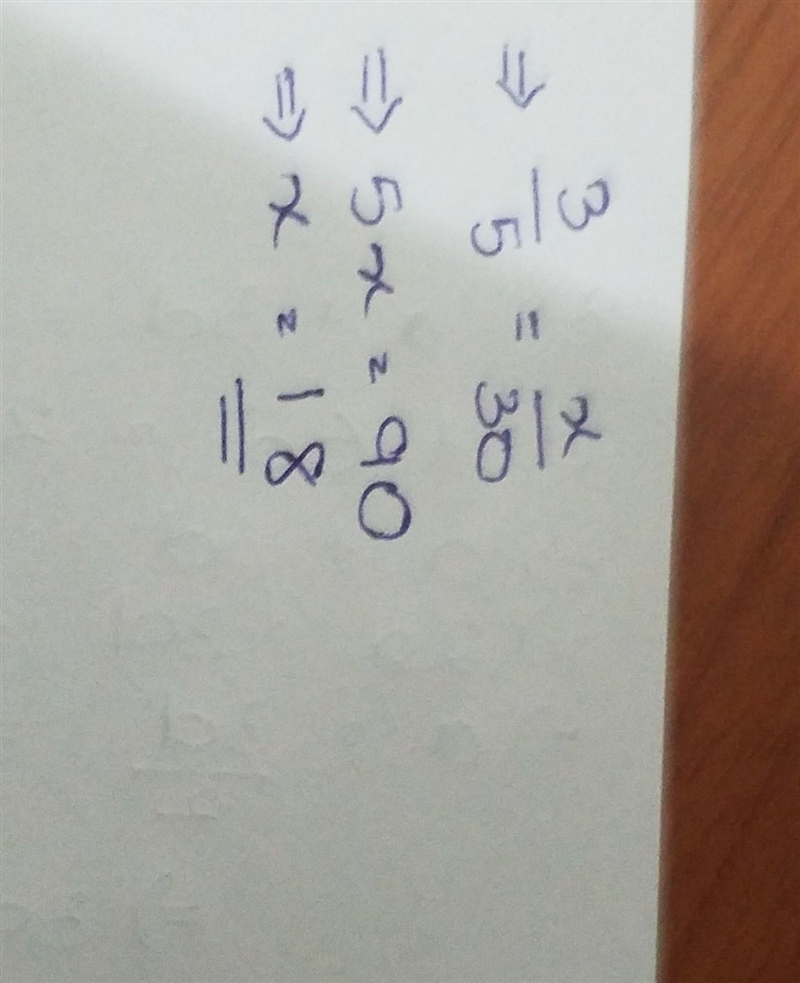 ⇒ 3/5 = x/30
⇒ 5x = 90
⇒ x = 18